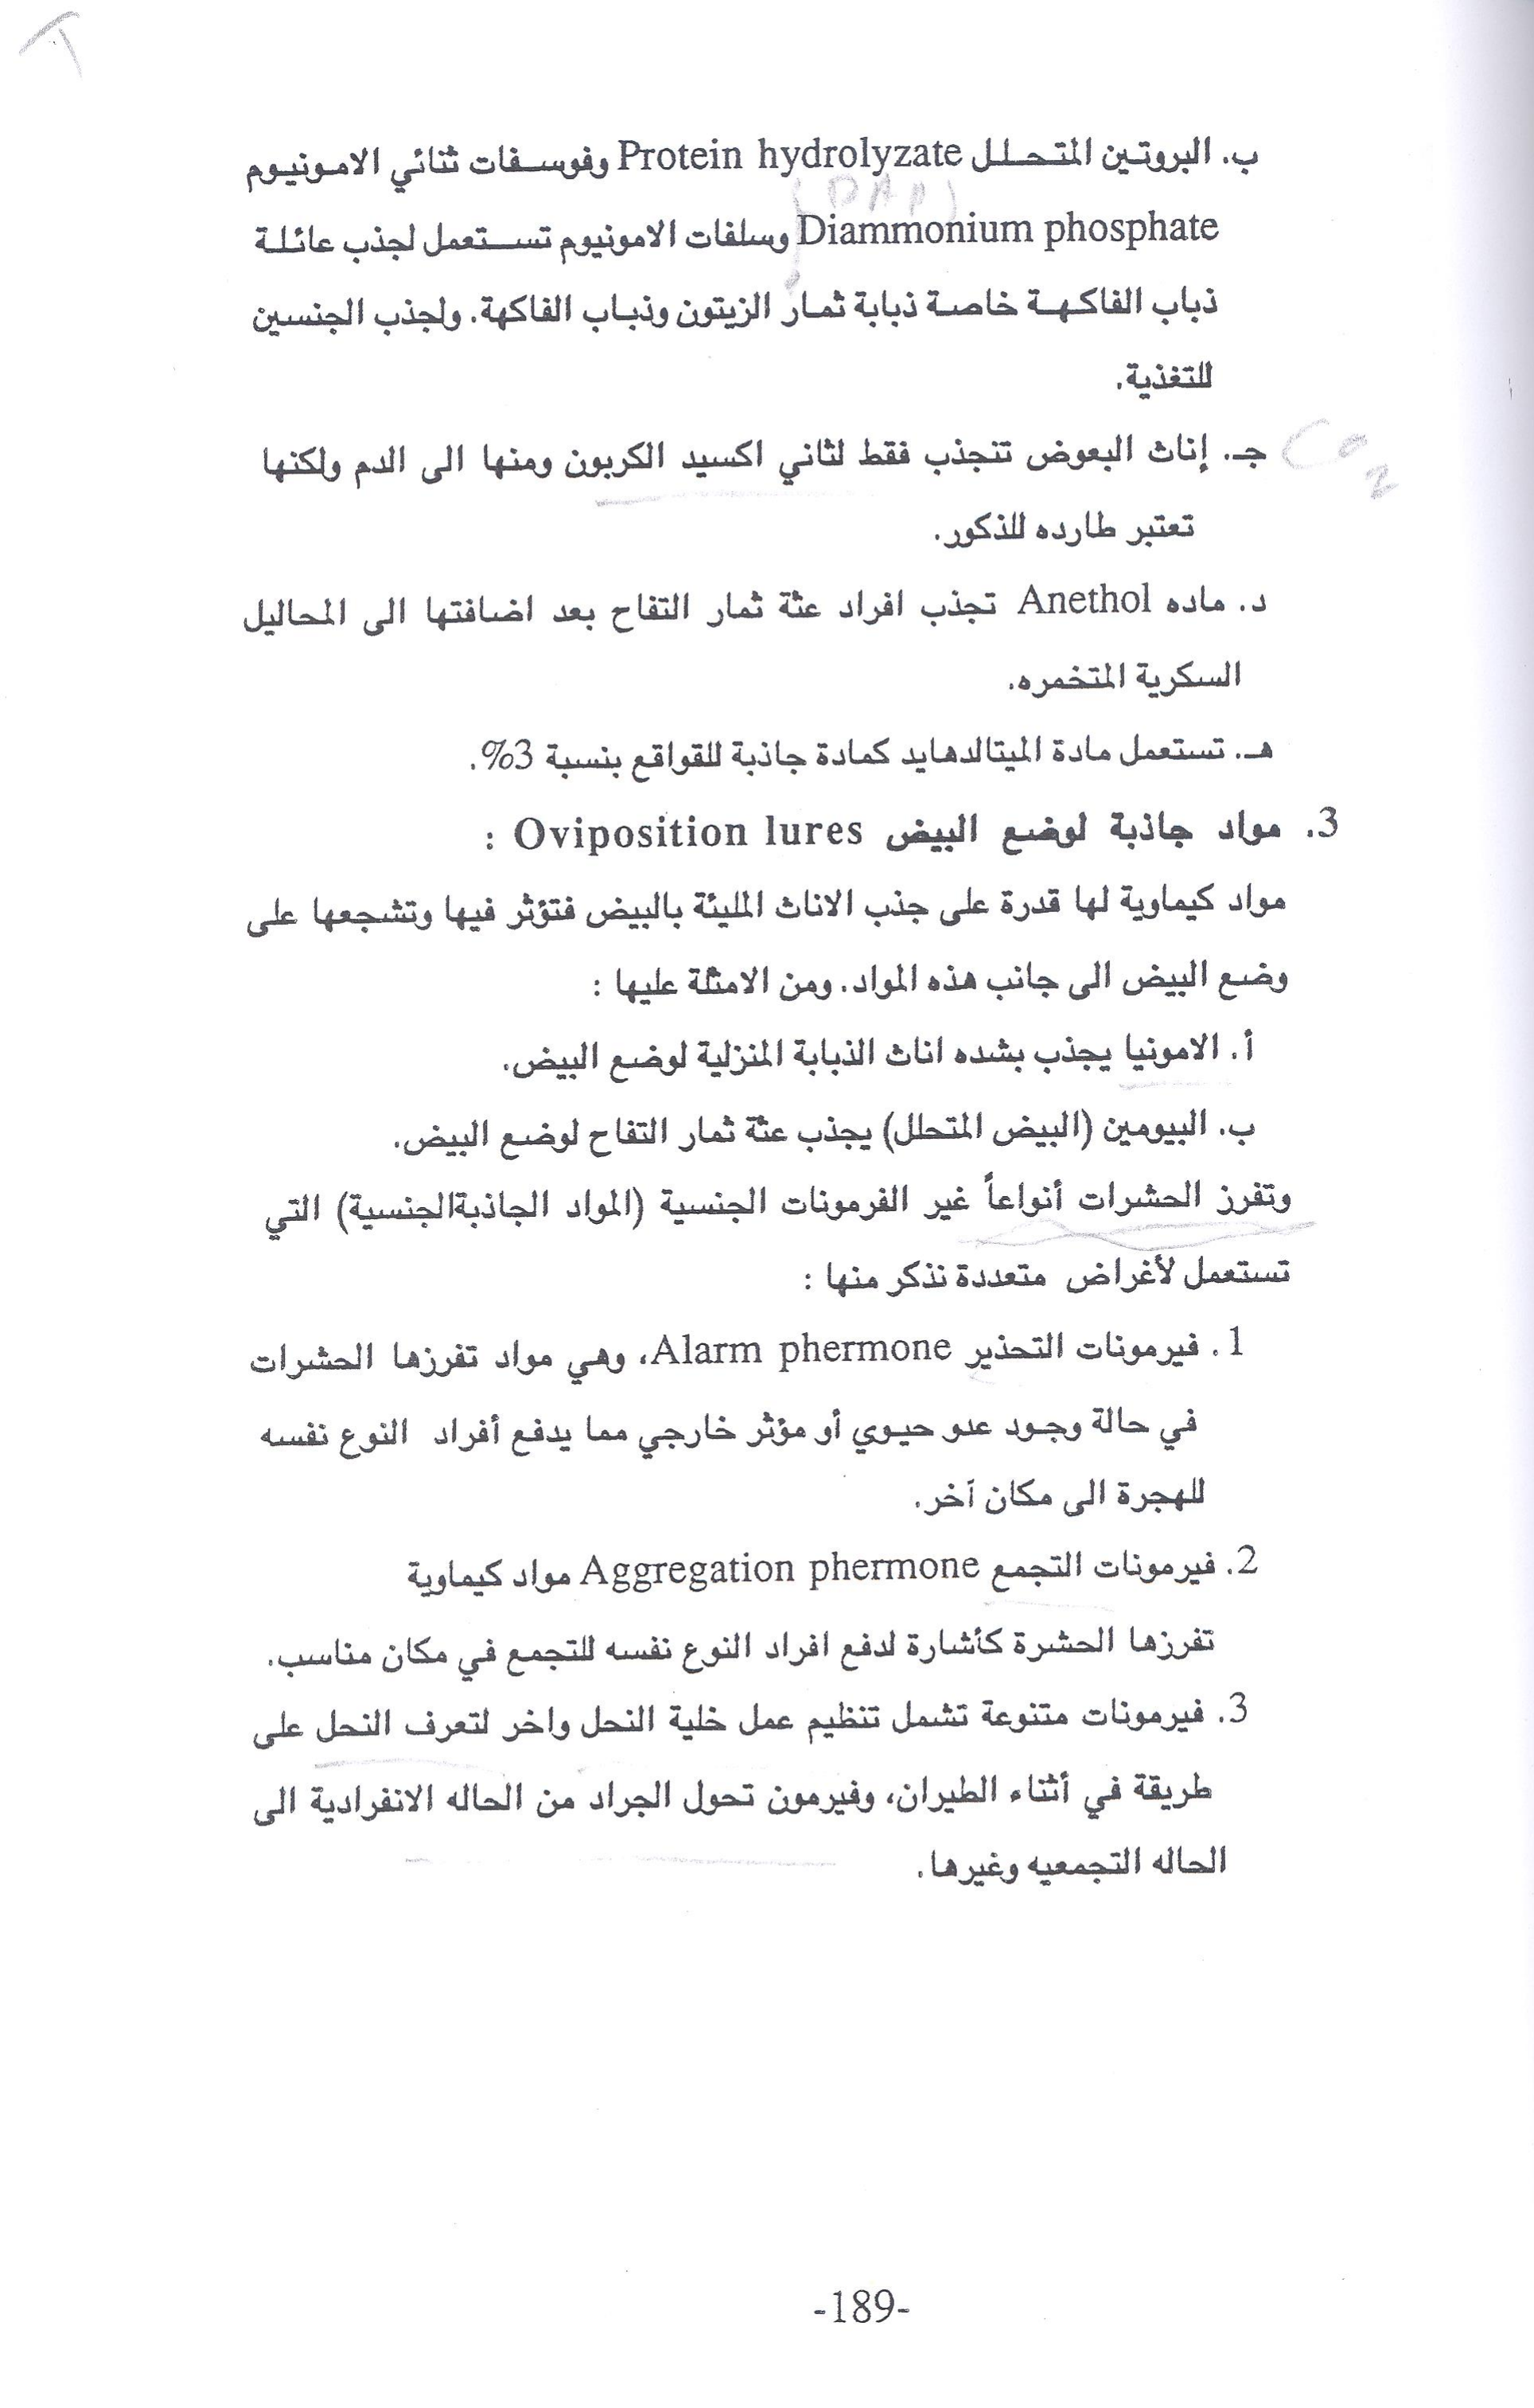 ب. البروتين المتحلل Protein hydrolyzate وفوسفات ثنائي الامونيوم
(DAP)
Diammonium phosphate وسلفات الامونيوم تستعمل لجذب عائلة
ذباب الفاكهة خاصة ذبابة ثمار الزيتون وذباب الفاكهة. ولجذب الجنسين
للتغذية.
جـ. إناث البعوض تنجذب فقط لثاني اكسيد الكربون ومنها الى الدم ولكنها
Co2
تعتبر طارده للذكور.
د. ماده Anethol تجذب افراد عثة ثمار التفاح بعد اضافتها الى المحاليل
السكرية المتخمره.
هـ. تستعمل مادة الميتالدهايد كمادة جاذبة للقواقع بنسبة 3%.
3. مواد جاذبة لوضع البيض Oviposition lures :
مواد كيماوية لها قدرة على جذب الاناث المليئة بالبيض فتؤثر فيها وتشجعها على
وضع البيض الى جانب هذه المواد. ومن الامثلة عليها :
أ. الامونيا يجذب بشده اناث الذبابة المنزلية لوضع البيض.
ب. البيومين (البيض المتحلل) يجذب عثة ثمار التفاح لوضع البيض.
وتفرز الحشرات أنواعاً غير الفرمونات الجنسية (المواد الجاذبةالجنسية) التي
تستعمل لأغراض متعددة نذكر منها :
1. فيرمونات التحذير Alarm phermone، وهي مواد تفرزها الحشرات
في حالة وجود عدو حيوي أو مؤثر خارجي مما يدفع أفراد النوع نفسه
للهجرة الى مكان آخر.
2. فيرمونات التجمع Aggregation phermone مواد كيماوية
تفرزها الحشرة كأشارة لدفع افراد النوع نفسه للتجمع في مكان مناسب.
3. فيرمونات متنوعة تشمل تنظيم عمل خلية النحل واخر لتعرف النحل على
طريقة في أثناء الطيران، وفيرمون تحول الجراد من الحاله الانفرادية الى
الحاله التجمعيه وغيرها.
-189-